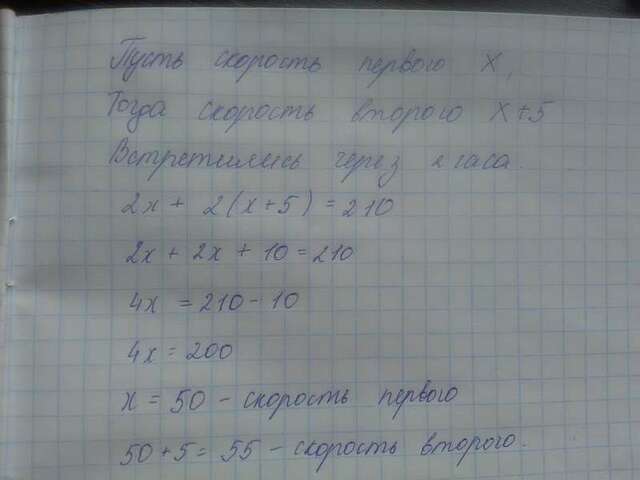 Пусть скорость первого X,
Тогда скорость второго X+5
Встретились через 2 часа.
2x + 2(x+5) = 210
2x + 2x + 10 = 210
4x = 210 - 10
4x = 200
x = 50 - скорость первого
50 + 5 = 55 - скорость второго.